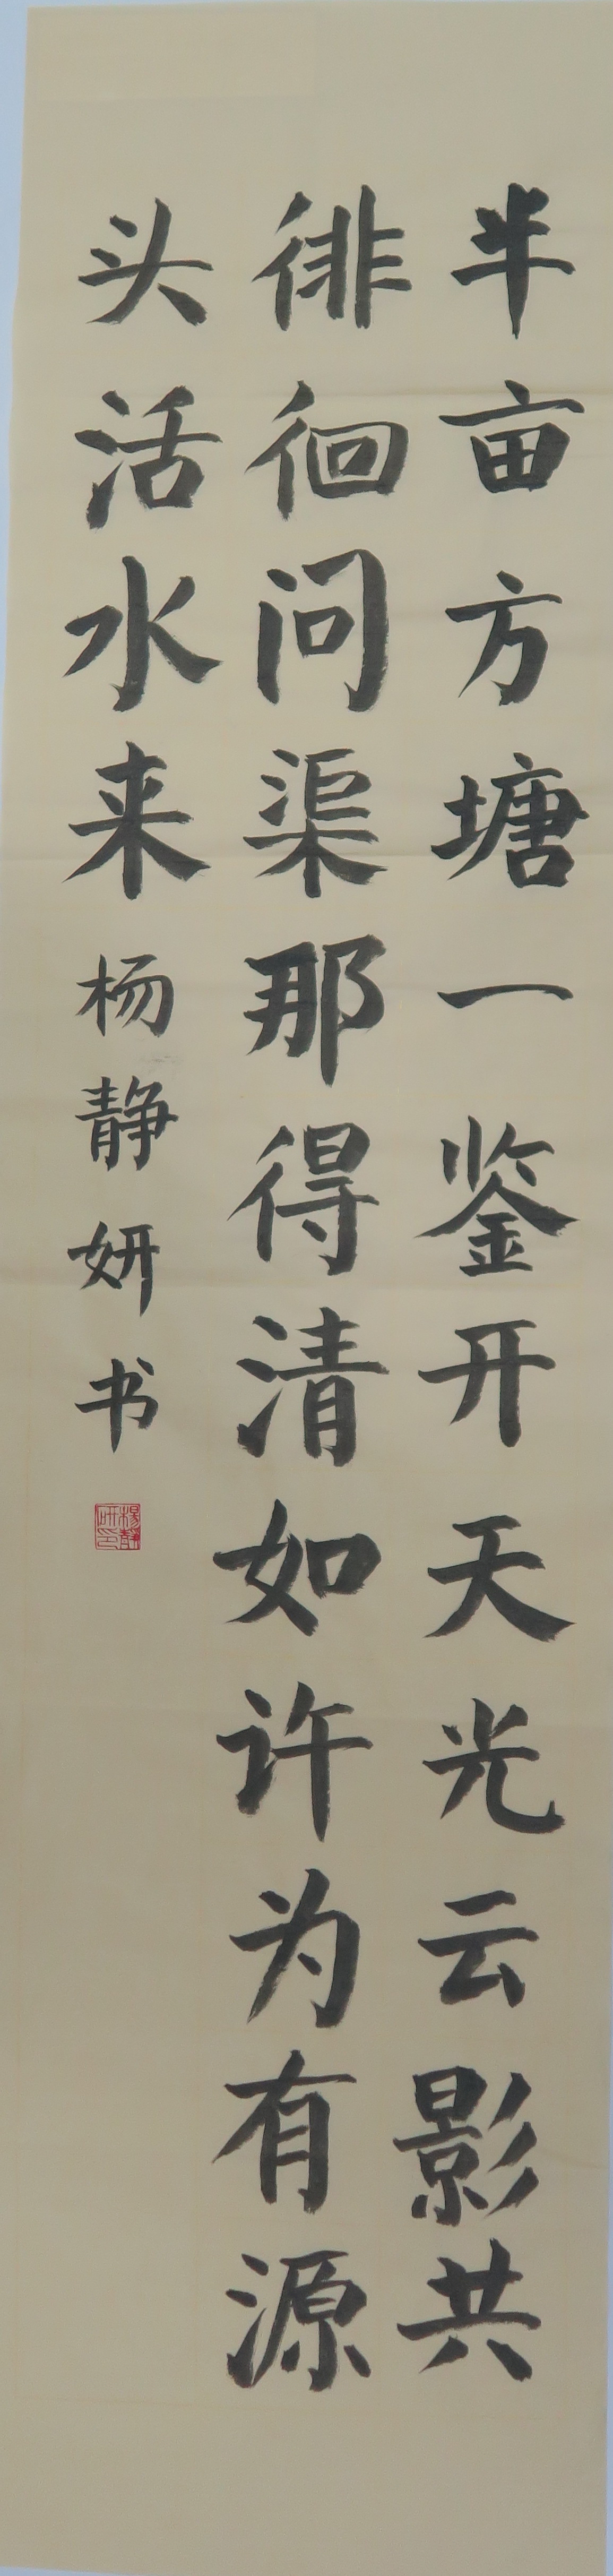 半亩方塘一鉴开天光云影共
徘徊问渠那得清如许为有源
头活水来 杨静妍书
杨静妍印